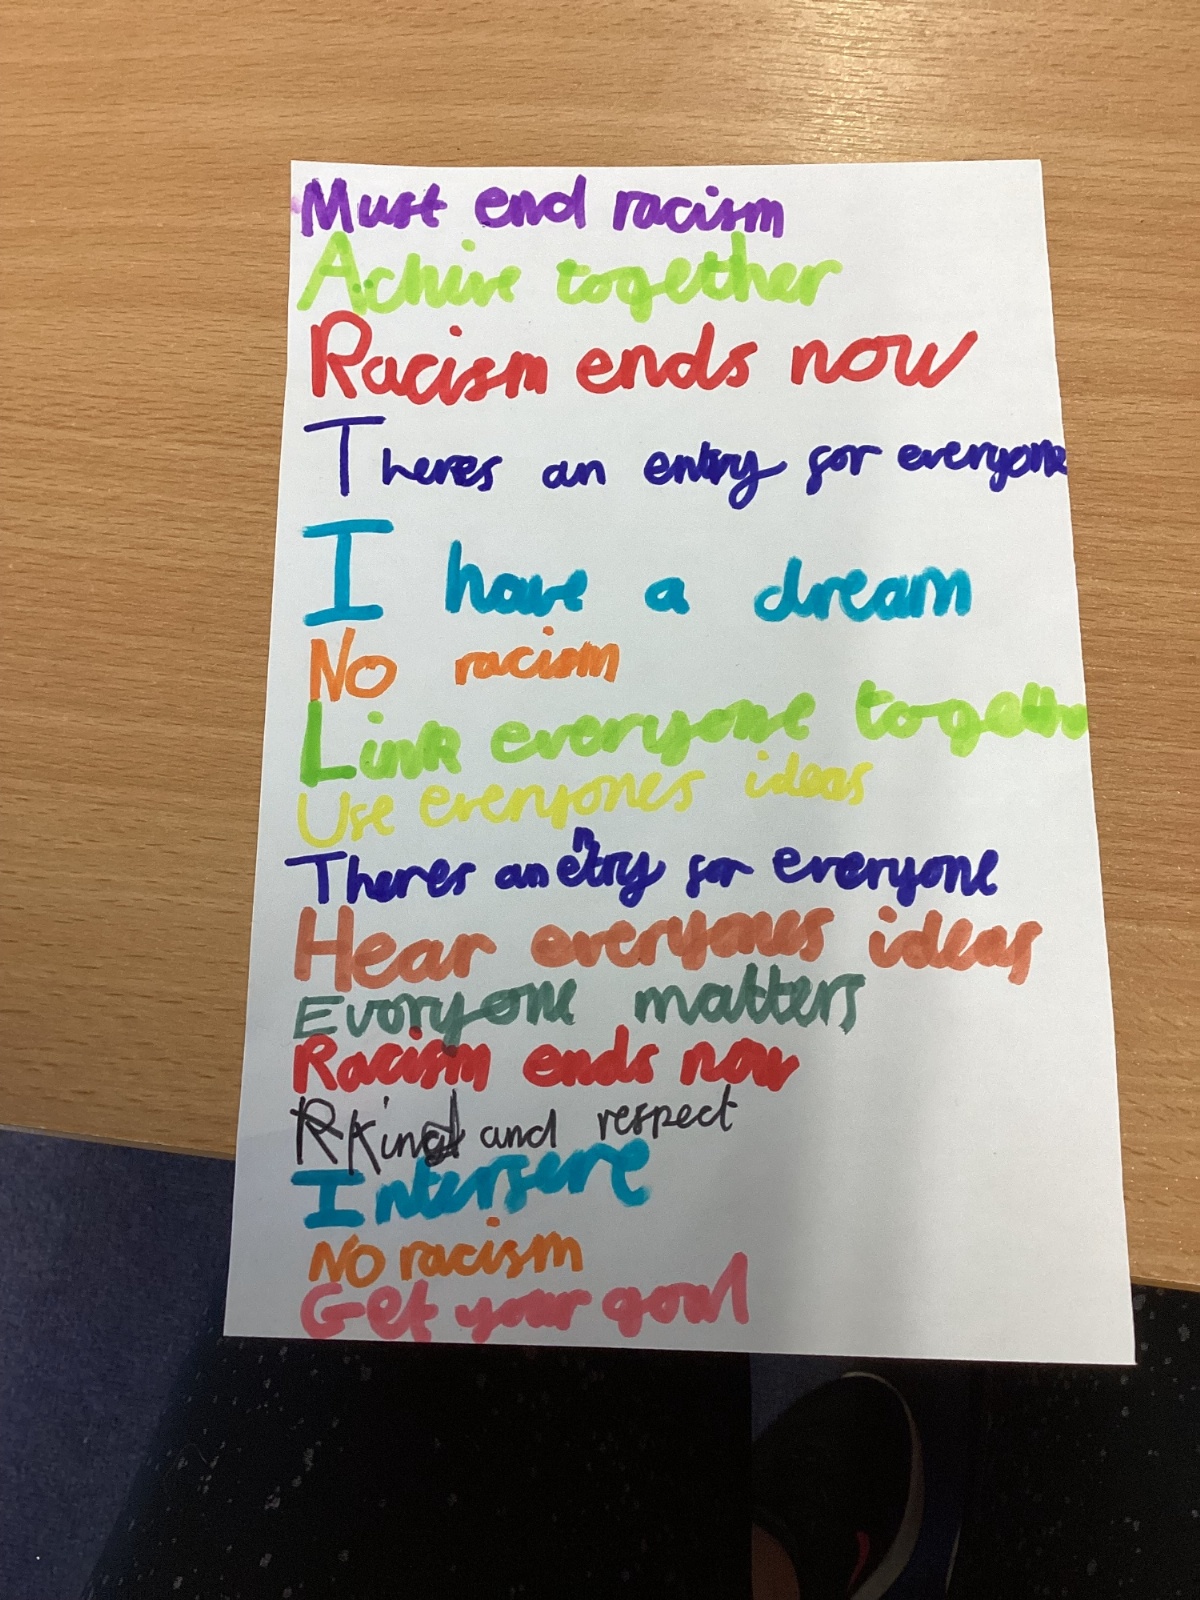 Must end racism
Achive together
Racism ends now
Theres an entry for everyone
I have a dream
No racism
Link everyone togethe
Use everyones ideas
Theres an entry for everyone
Hear everyones ideas
Everyone matters
Racism ends now
RKind and respect
Interfere
No racism
Get your goal